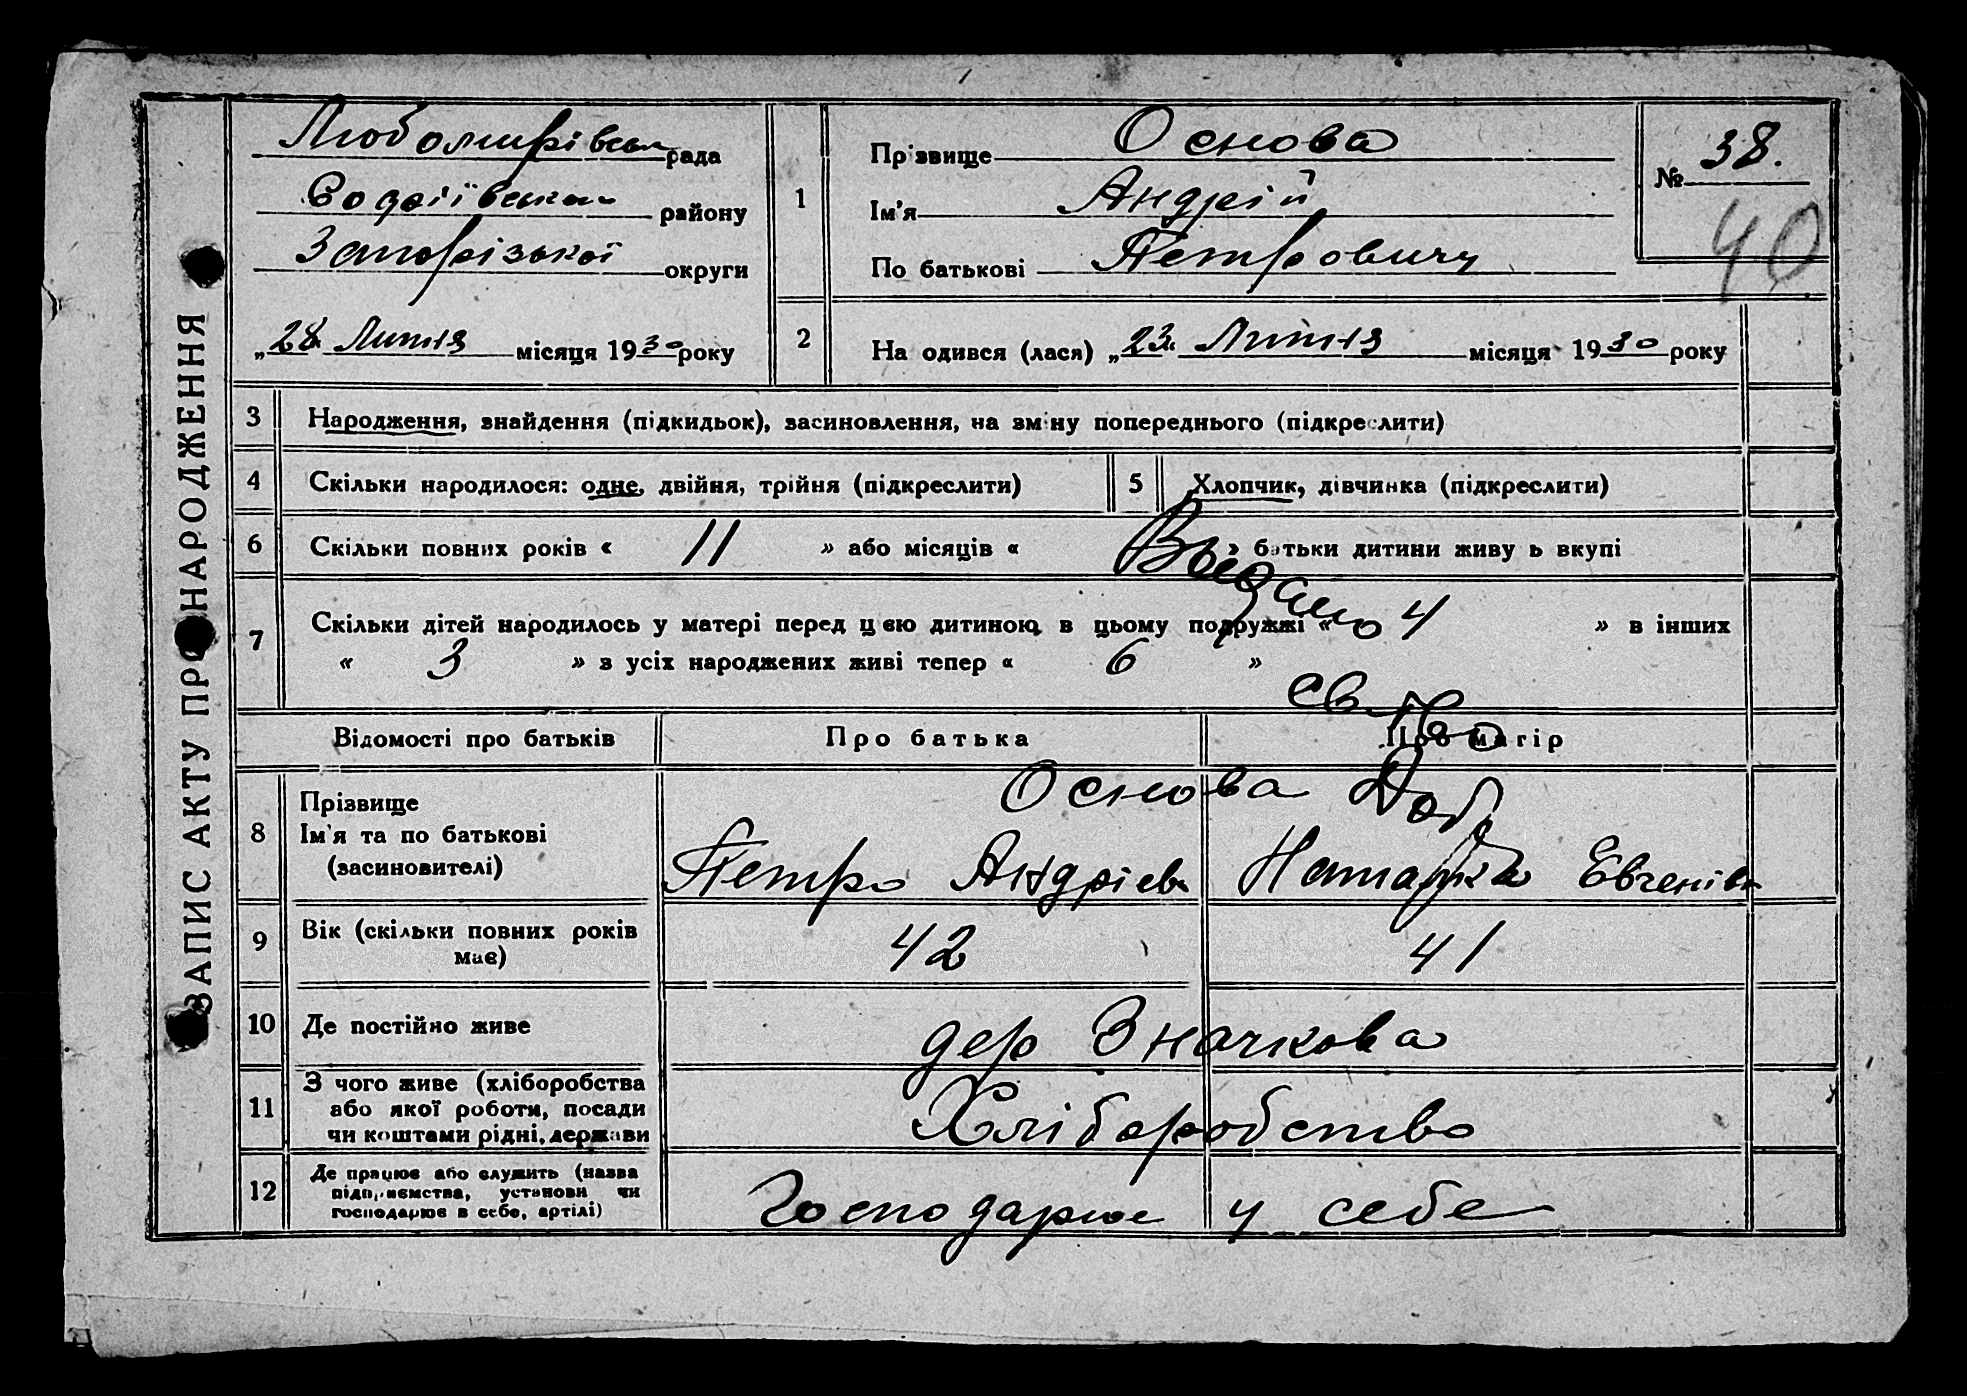 ЗАПИС АКТУ ПРО НАРОДЖЕННЯ
Любомирівськ рада
Софіївського району
Запорізької округи
„28“ Липня місяця 1930 року
1
Прізвище Основа
Ім'я Андрій
По батькові Петровичу
№ 38.
40
2
На одився (лася) „23“ Липня місяця 1930 року
3 Народження, знайдення (підкидьок), засиновлення, на зміну попереднього (підкреслити)
4 Скільки народилося: одне, двійня, трійня (підкреслити)
5 Хлопчик, дівчинка (підкреслити)
6 Скільки повних років « 11 » або місяців « » батьки дитини живуть вкупі
7 Скільки дітей народилось у матері перед цією дитиною, в цьому подружжі « 4 » в інших
« 3 » з усіх народжених живі тепер « 6 »
Выдано
св-во
Відомості про батьків Про батька Про матір
8 Прізвище
Ім'я та по батькові
(засиновителі)
Основа
Петро Андрієв Наталка Евгенівн
9 Вік (скільки повних років
має)
42 41
10 Де постійно живе дер Значкова
11 З чого живе (хліборобства
або якої роботи, посади
чи коштами рідні, держави
Хліборобство
12 Де працює або служить (назва
підприємства, установи чи
господарює в себе, артілі)
Господарює у себе